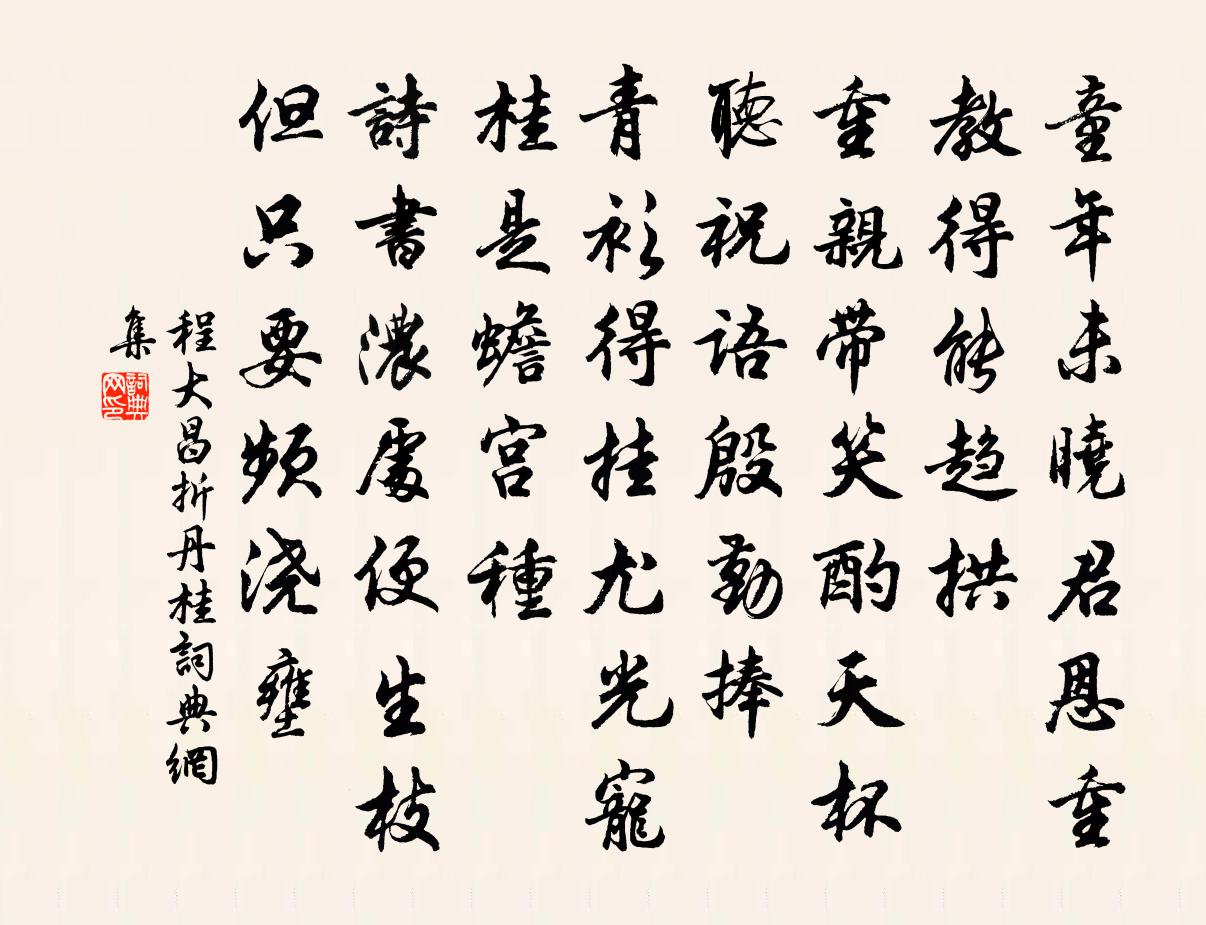 童年未曉君恩重
教得能趋拱
重親帶笑酌天杯
聽祝語殷勤捧
青衫得挂尤光寵
桂是蟾宫種
詩書濃處便生枝
但只要頻浇壅
程大昌折丹桂詞典網
集
詞典网印